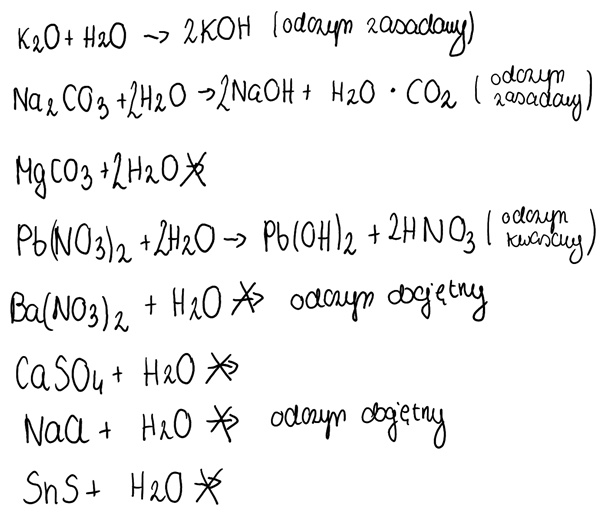 K2O + H2O → 2KOH (odczyn zasadowy)
Na2CO3 + 2H2O → 2NaOH + H2O · CO2 (odczyn zasadowy)
MgCO3 + 2H2O ↛
Pb(NO3)2 + 2H2O → Pb(OH)2 + 2HNO3 (odczyn kwasowy)
Ba(NO3)2 + H2O ↛ odczyn obojętny
CaSO4 + H2O ↛
NaCl + H2O ↛ odczyn obojętny
SnS + H2O ↛